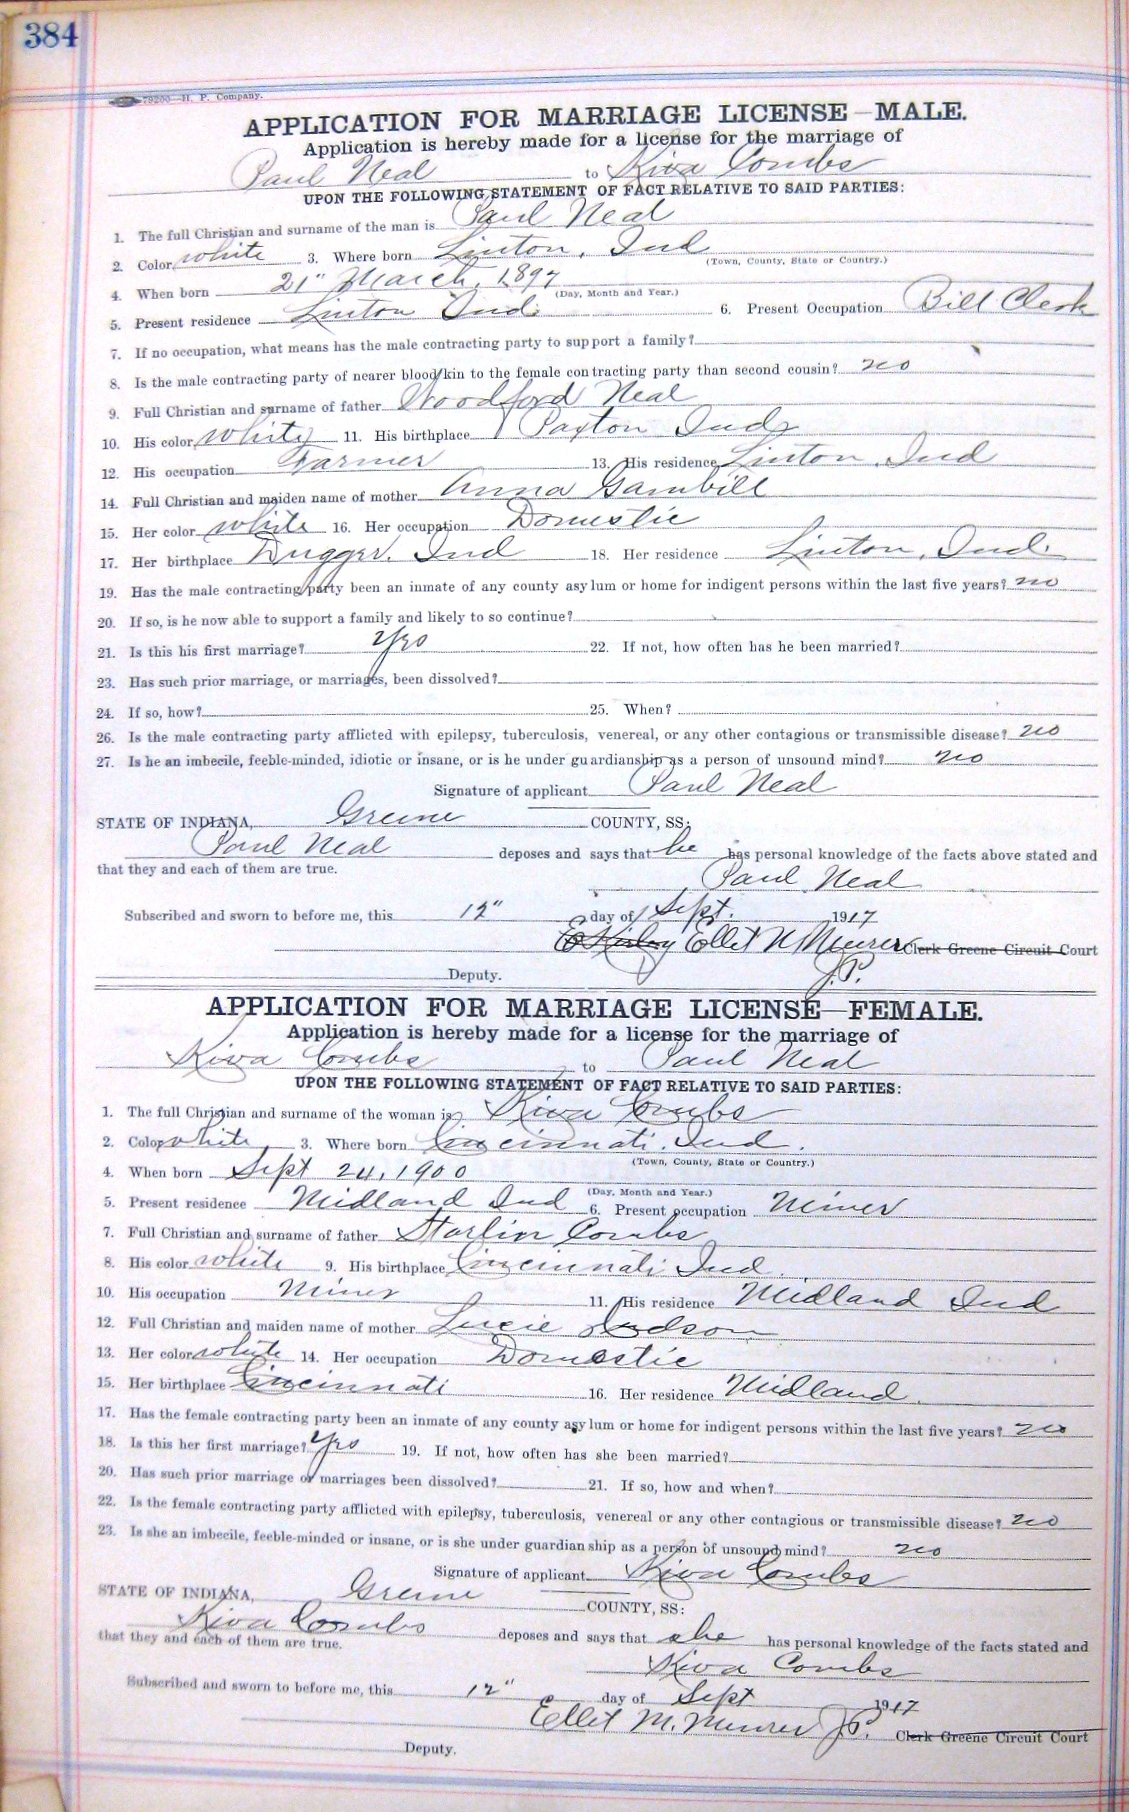 384
79200—H. P. Company.
APPLICATION FOR MARRIAGE LICENSE—MALE.
Application is hereby made for a license for the marriage of
Paul Neal to Kiva Combs
UPON THE FOLLOWING STATEMENT OF FACT RELATIVE TO SAID PARTIES:
1. The full Christian and surname of the man is Paul Neal
2. Color white 3. Where born Linton, Ind
(Town, County, State or Country.)
4. When born 21" March, 1897
(Day, Month and Year.)
5. Present residence Linton Ind. 6. Present Occupation Bill Clerk
7. If no occupation, what means has the male contracting party to support a family?
8. Is the male contracting party of nearer blood kin to the female contracting party than second cousin? no
9. Full Christian and surname of father Woodford Neal
10. His color white 11. His birthplace Paxton Ind
12. His occupation Farmer 13. His residence Linton, Ind
14. Full Christian and maiden name of mother Anna Gambill
15. Her color white 16. Her occupation Domestic
17. Her birthplace Dugger, Ind 18. Her residence Linton, Ind.
19. Has the male contracting party been an inmate of any county asylum or home for indigent persons within the last five years? no
20. If so, is he now able to support a family and likely to so continue?
21. Is this his first marriage? Yes 22. If not, how often has he been married?
23. Has such prior marriage, or marriages, been dissolved?
24. If so, how? 25. When?
26. Is the male contracting party afflicted with epilepsy, tuberculosis, venereal, or any other contagious or transmissible disease? no
27. Is he an imbecile, feeble-minded, idiotic or insane, or is he under guardianship as a person of unsound mind? no
Signature of applicant Paul Neal
STATE OF INDIANA, Greene COUNTY, SS:
Paul Neal deposes and says that he has personal knowledge of the facts above stated and
that they and each of them are true.
Paul Neal
Subscribed and sworn to before me, this 12" day of Sept. 1917
Ellet M Clerk Greene Circuit Court
J.P.
Deputy.
APPLICATION FOR MARRIAGE LICENSE—FEMALE.
Application is hereby made for a license for the marriage of
Kiva Combs to Paul Neal
UPON THE FOLLOWING STATEMENT OF FACT RELATIVE TO SAID PARTIES:
1. The full Christian and surname of the woman is Kiva Combs
2. Color white 3. Where born Cincinnati, Ind.
(Town, County, State or Country.)
4. When born Sept 24, 1900
(Day, Month and Year.)
5. Present residence Midland Ind 6. Present occupation Miner
7. Full Christian and surname of father Starlin Combs
8. His color white 9. His birthplace Cincinnati Ind.
10. His occupation Miner 11. His residence Midland Ind
12. Full Christian and maiden name of mother Lucie
13. Her color white 14. Her occupation Domestic
15. Her birthplace Cincinnati 16. Her residence Midland.
17. Has the female contracting party been an inmate of any county asylum or home for indigent persons within the last five years? no
18. Is this her first marriage? Yes 19. If not, how often has she been married?
20. Has such prior marriage or marriages been dissolved? 21. If so, how and when?
22. Is the female contracting party afflicted with epilepsy, tuberculosis, venereal or any other contagious or transmissible disease? no
23. Is she an imbecile, feeble-minded or insane, or is she under guardianship as a person of unsound mind? no
Signature of applicant Kiva Combs
STATE OF INDIANA, Greene COUNTY, SS:
Kiva Combs deposes and says that she has personal knowledge of the facts stated and
that they and each of them are true.
Kiva Combs
Subscribed and sworn to before me, this 12" day of Sept 1917
Ellet M. J.P. Clerk Greene Circuit Court
Deputy.